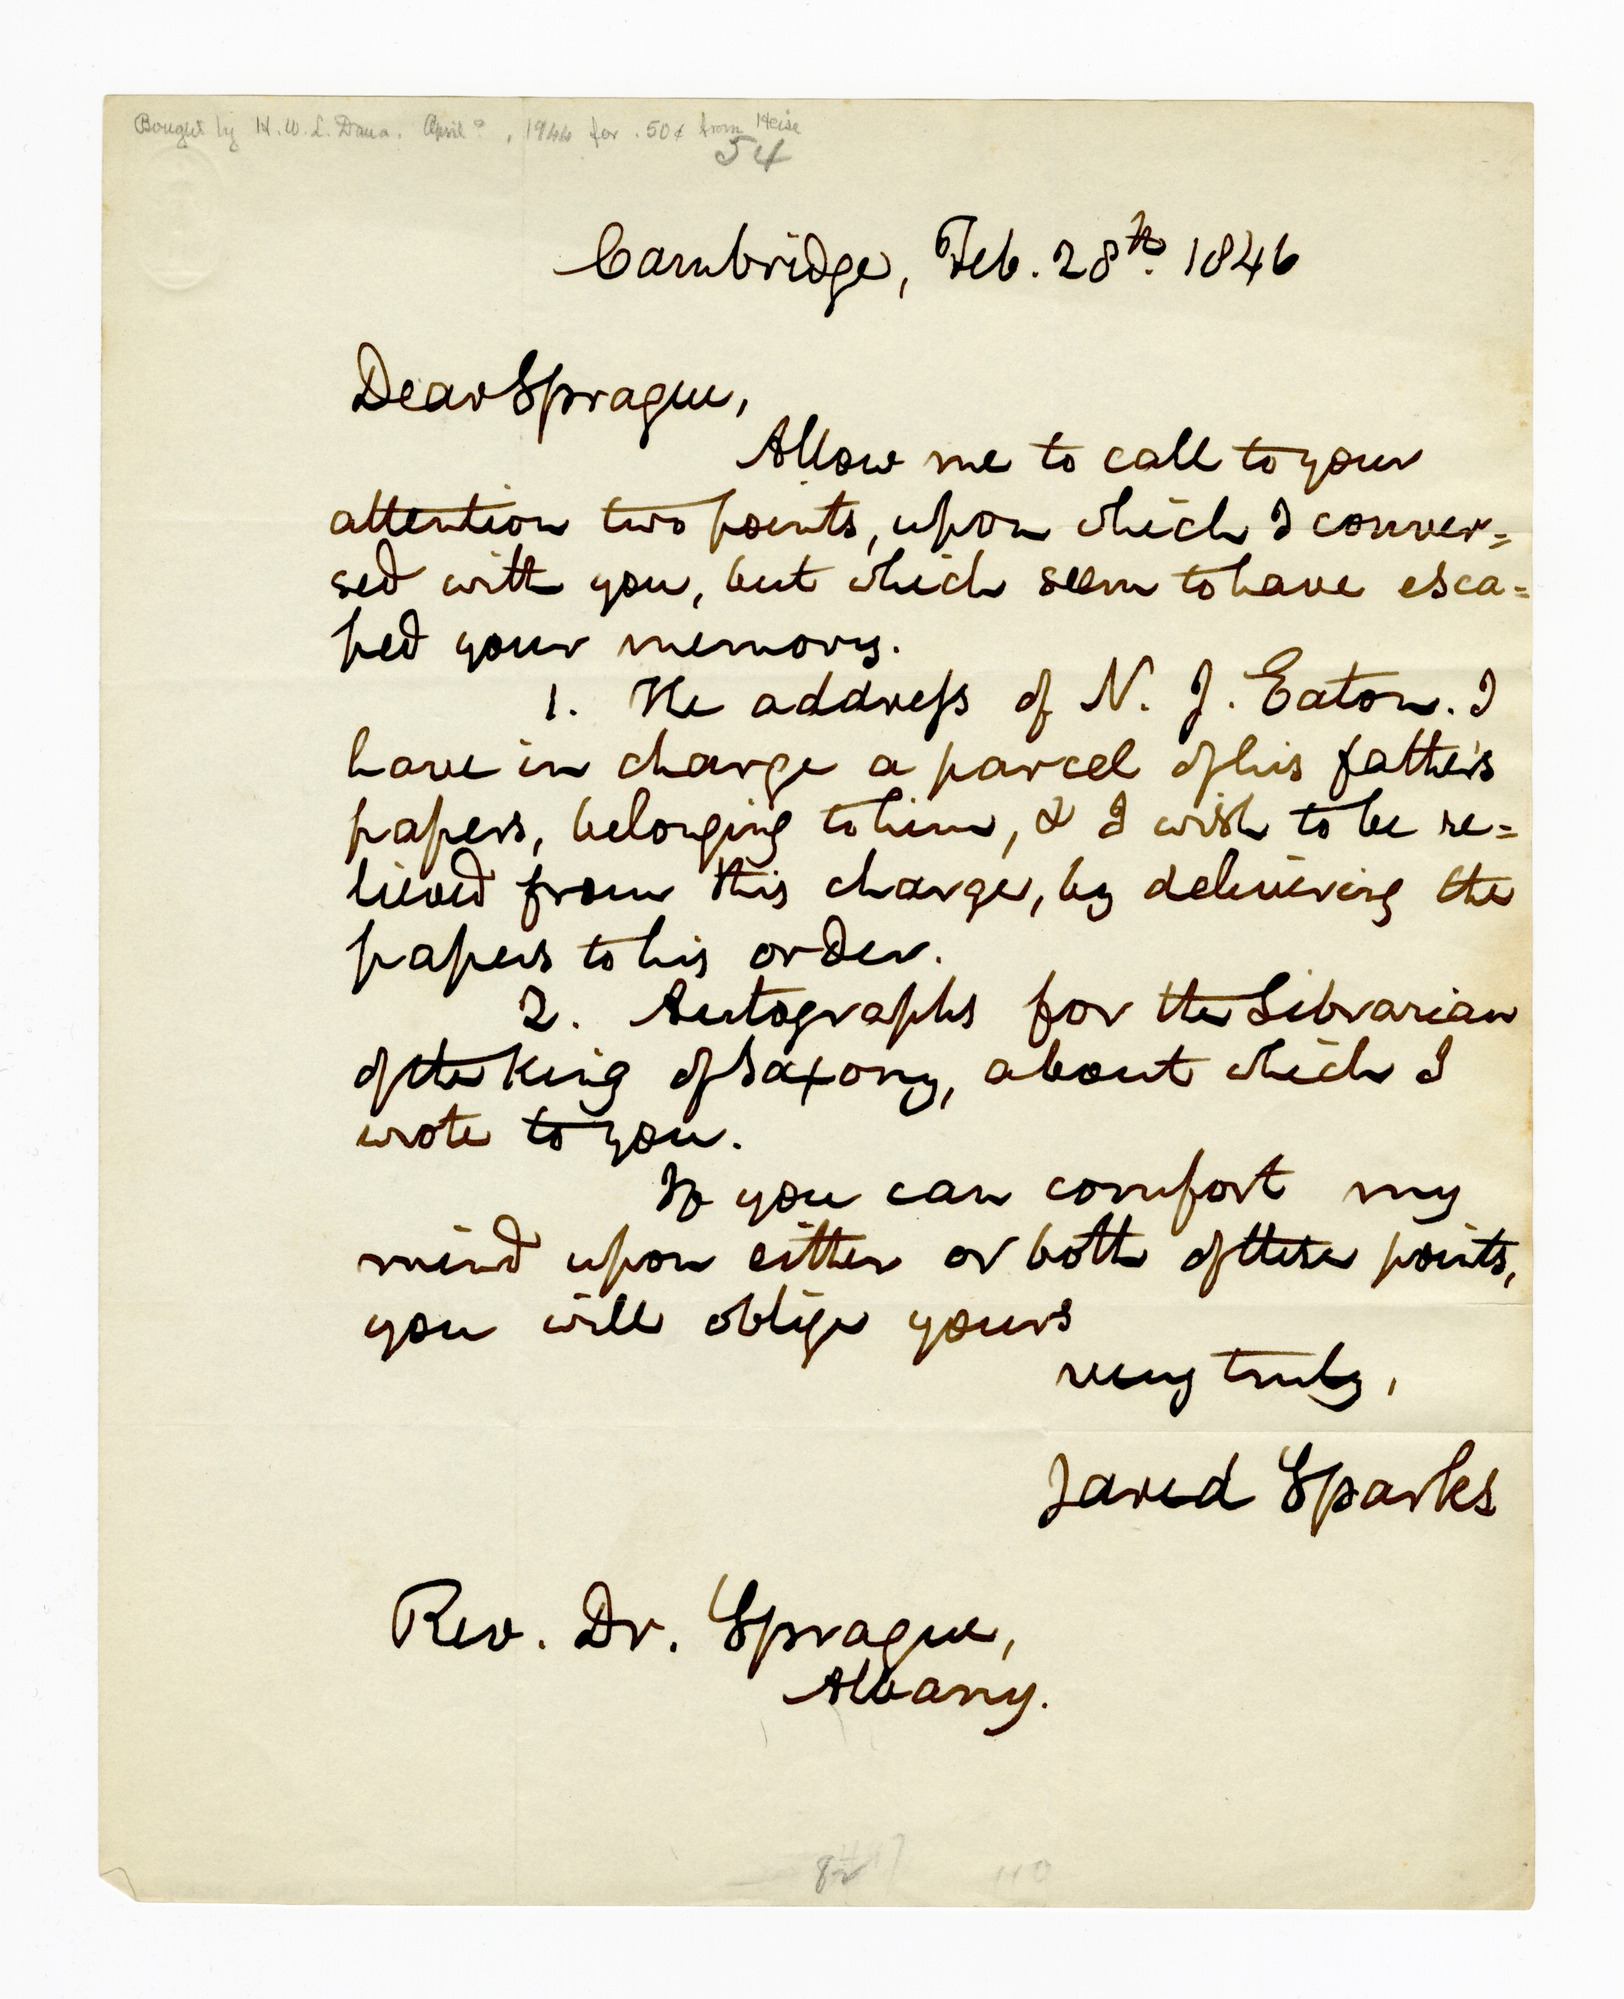 Bought by H. W. L. Dana. April , 1944 for .50¢ from Heise
54
Cambridge, Feb. 28th. 1846
Dear Sprague,
Allow me to call to your
attention two points, upon which I conver=
sed with you, but which seem to have esca=
ped your memory.
1. The address of N. J. Eaton. I
have in charge a parcel of his father's
papers, belonging to him, & I wish to be re=
lieved from this charge, by delivering the
papers to his order.
2. Autographs for the Librarian
of the King of Saxony, about which I
wrote to you.
If you can comfort my
mind upon either or both of these points,
you will oblige yours
very truly,
Jared Sparks
Rev. Dr. Sprague,
Albany.